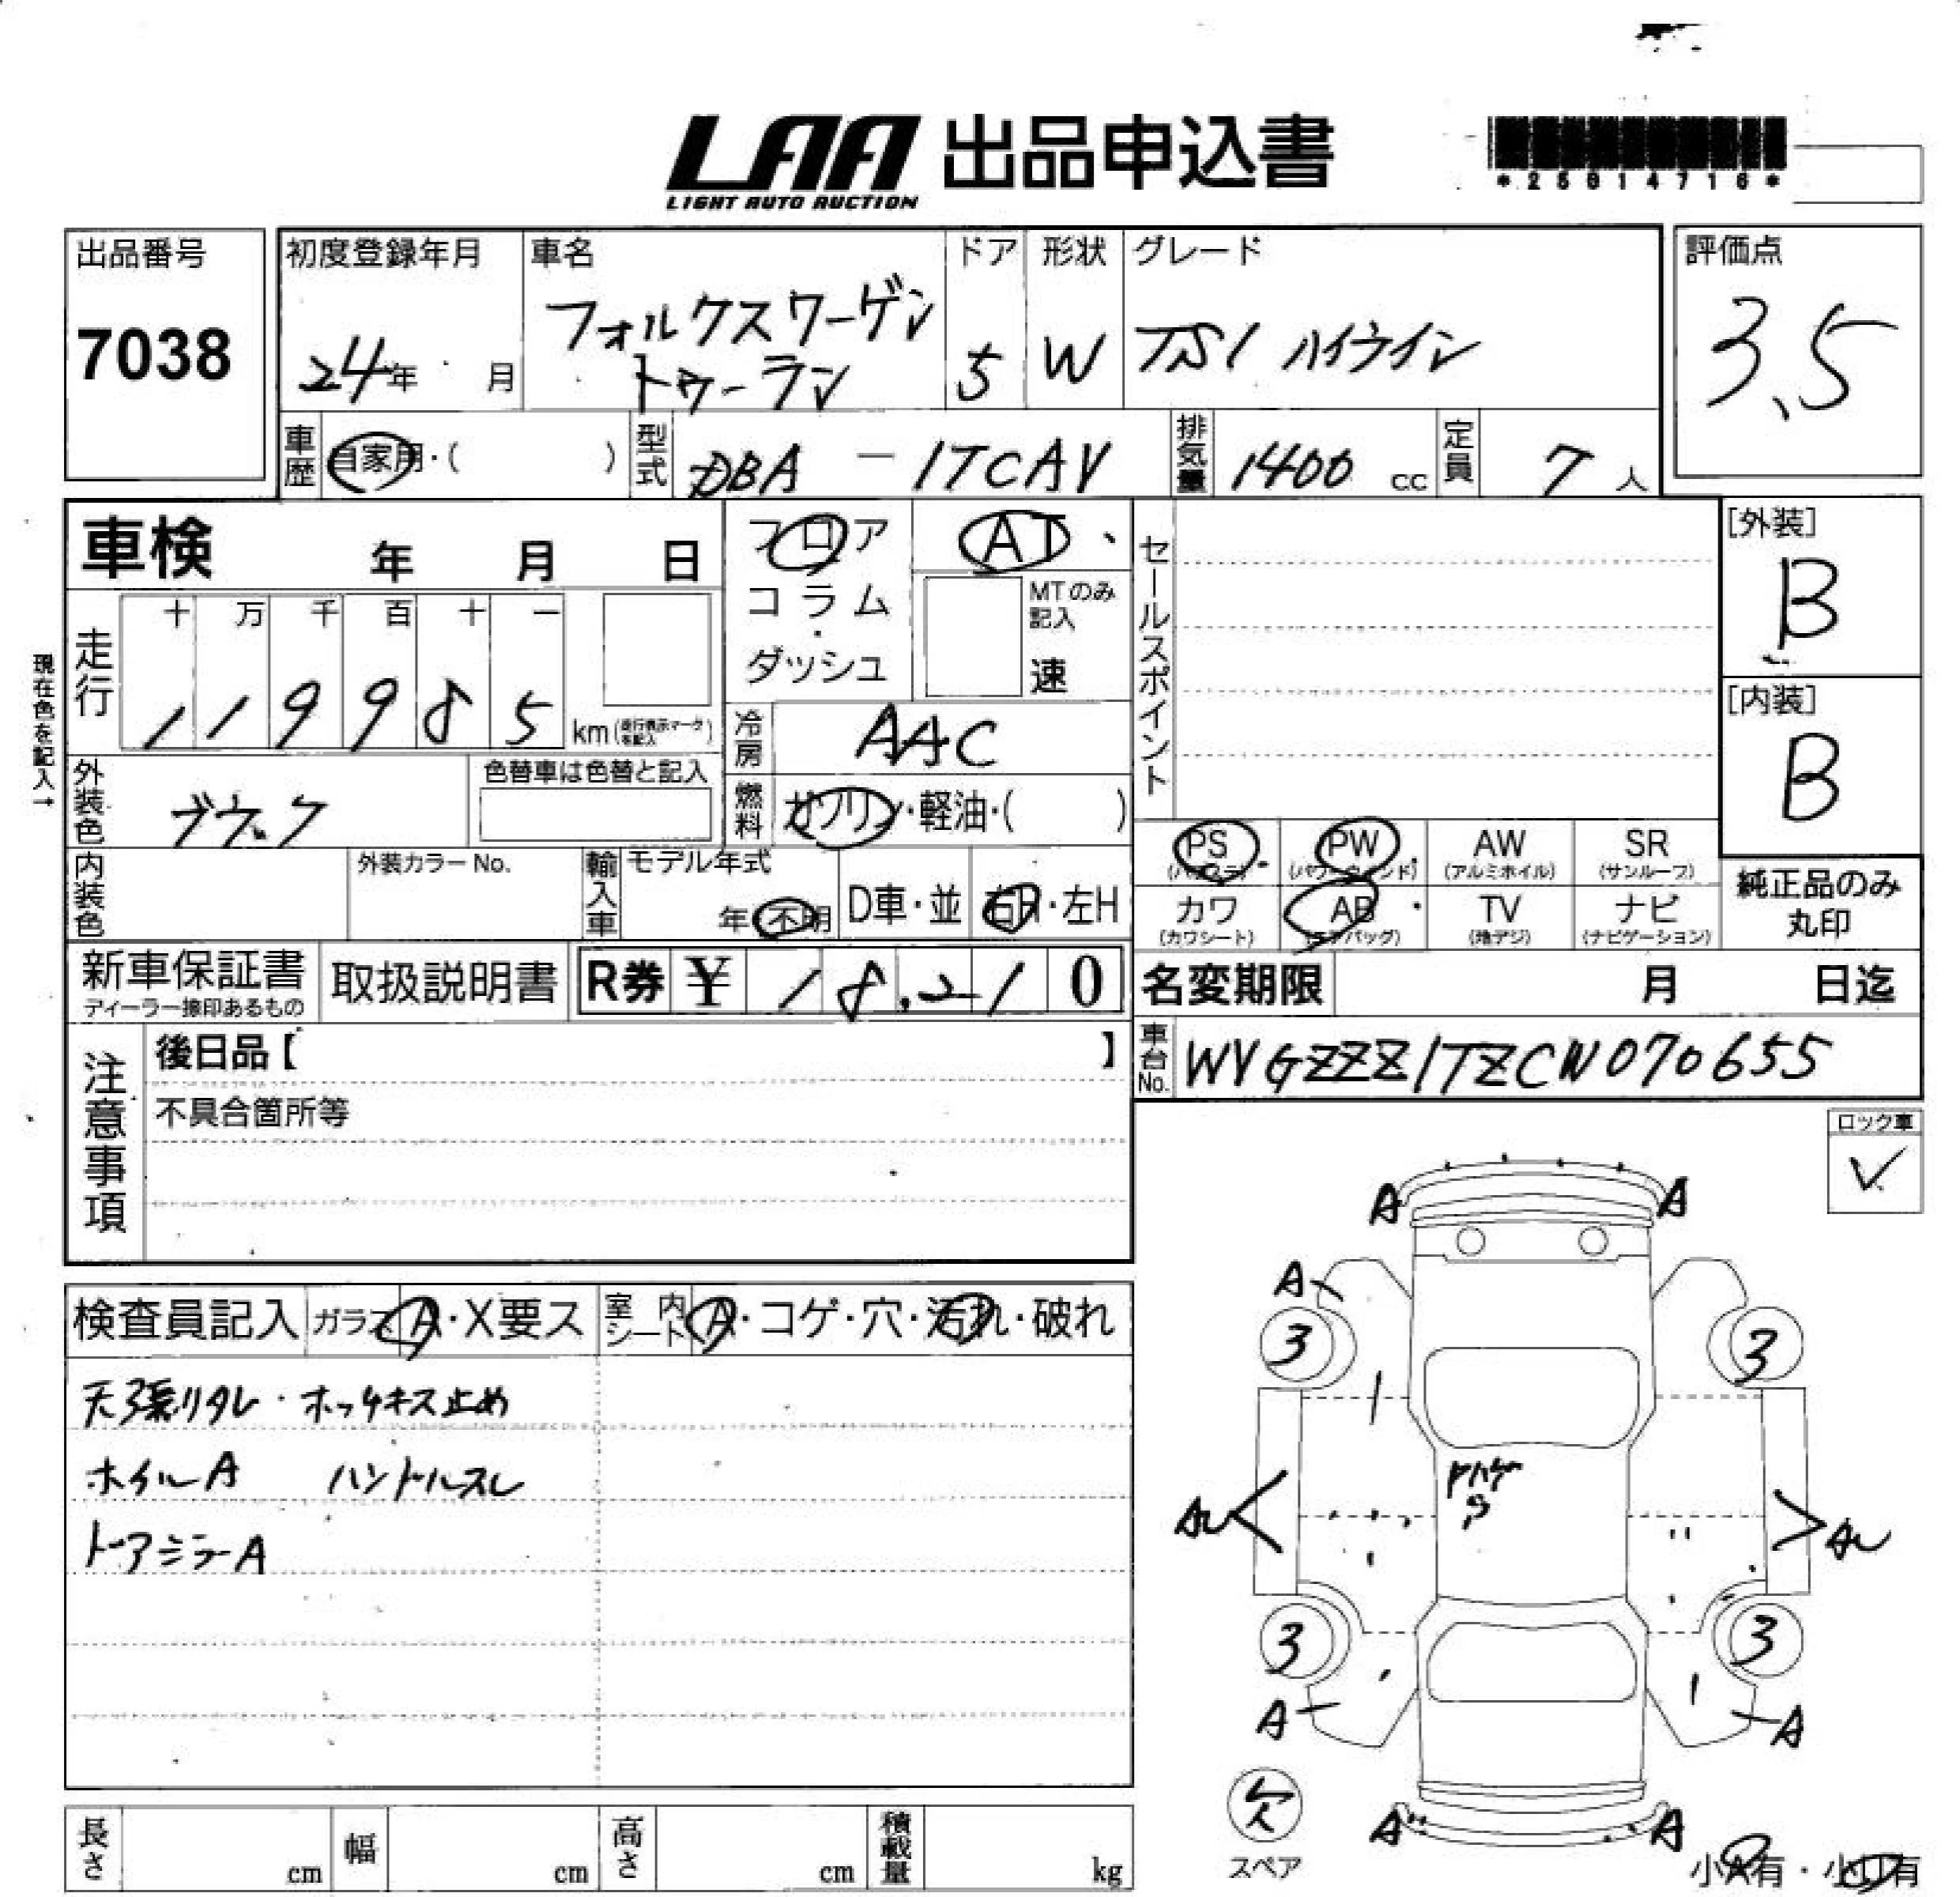 LAA 出品申込書
LIGHT AUTO AUCTION
*25014716*
出品番号
7038
初度登録年月
24年 月
車名
フォルクスワーゲン
トゥーラン
ドア
5
形状
W
グレード
TSI ハイライン
評価点
3.5
車歴 自家用・( )
型式 DBA－1TCAV
排気量 1400 cc
定員 7 人
車検 年 月 日
フロア
コラム
・
ダッシュ
AT、
MTのみ
記入
速
セールスポイント
[外装]
B
現在色を記入→
走行
十 万 千 百 十 一
1 1 9 9 8 5 km (走行表示マークを記入)
冷房 AAC
[内装]
B
外装色
色替車は色替と記入
燃料 ガソリン・軽油・( )
PS
(パワステ)
PW
(パワーウィンド)
AW
(アルミホイル)
SR
(サンルーフ)
内装色
外装カラーNo.
輸入車
モデル年式
年 不明
D車・並
右H・左H
カワ
(カワシート)
AB
(エアバッグ)
TV
(地デジ)
ナビ
(ナビゲーション)
純正品のみ
丸印
新車保証書
ディーラー捺印あるもの
取扱説明書
R券 ¥ 18,210
名変期限 月 日迄
注意事項
後日品【 】
不具合箇所等
車台No. WVGZZZ1TZCW070655
ロック車
✓
検査員記入
ガラス A・X要ス
室内シート A・コゲ・穴・汚れ・破れ
天張りタレ・ホッチキス止め
ホイルA ハンドルスレ
ドアミラーA
A A
A
3 3
3 3
A A
欠
スペア
A A
小A有・小U有
長さ cm
幅 cm
高さ cm
積載量 kg